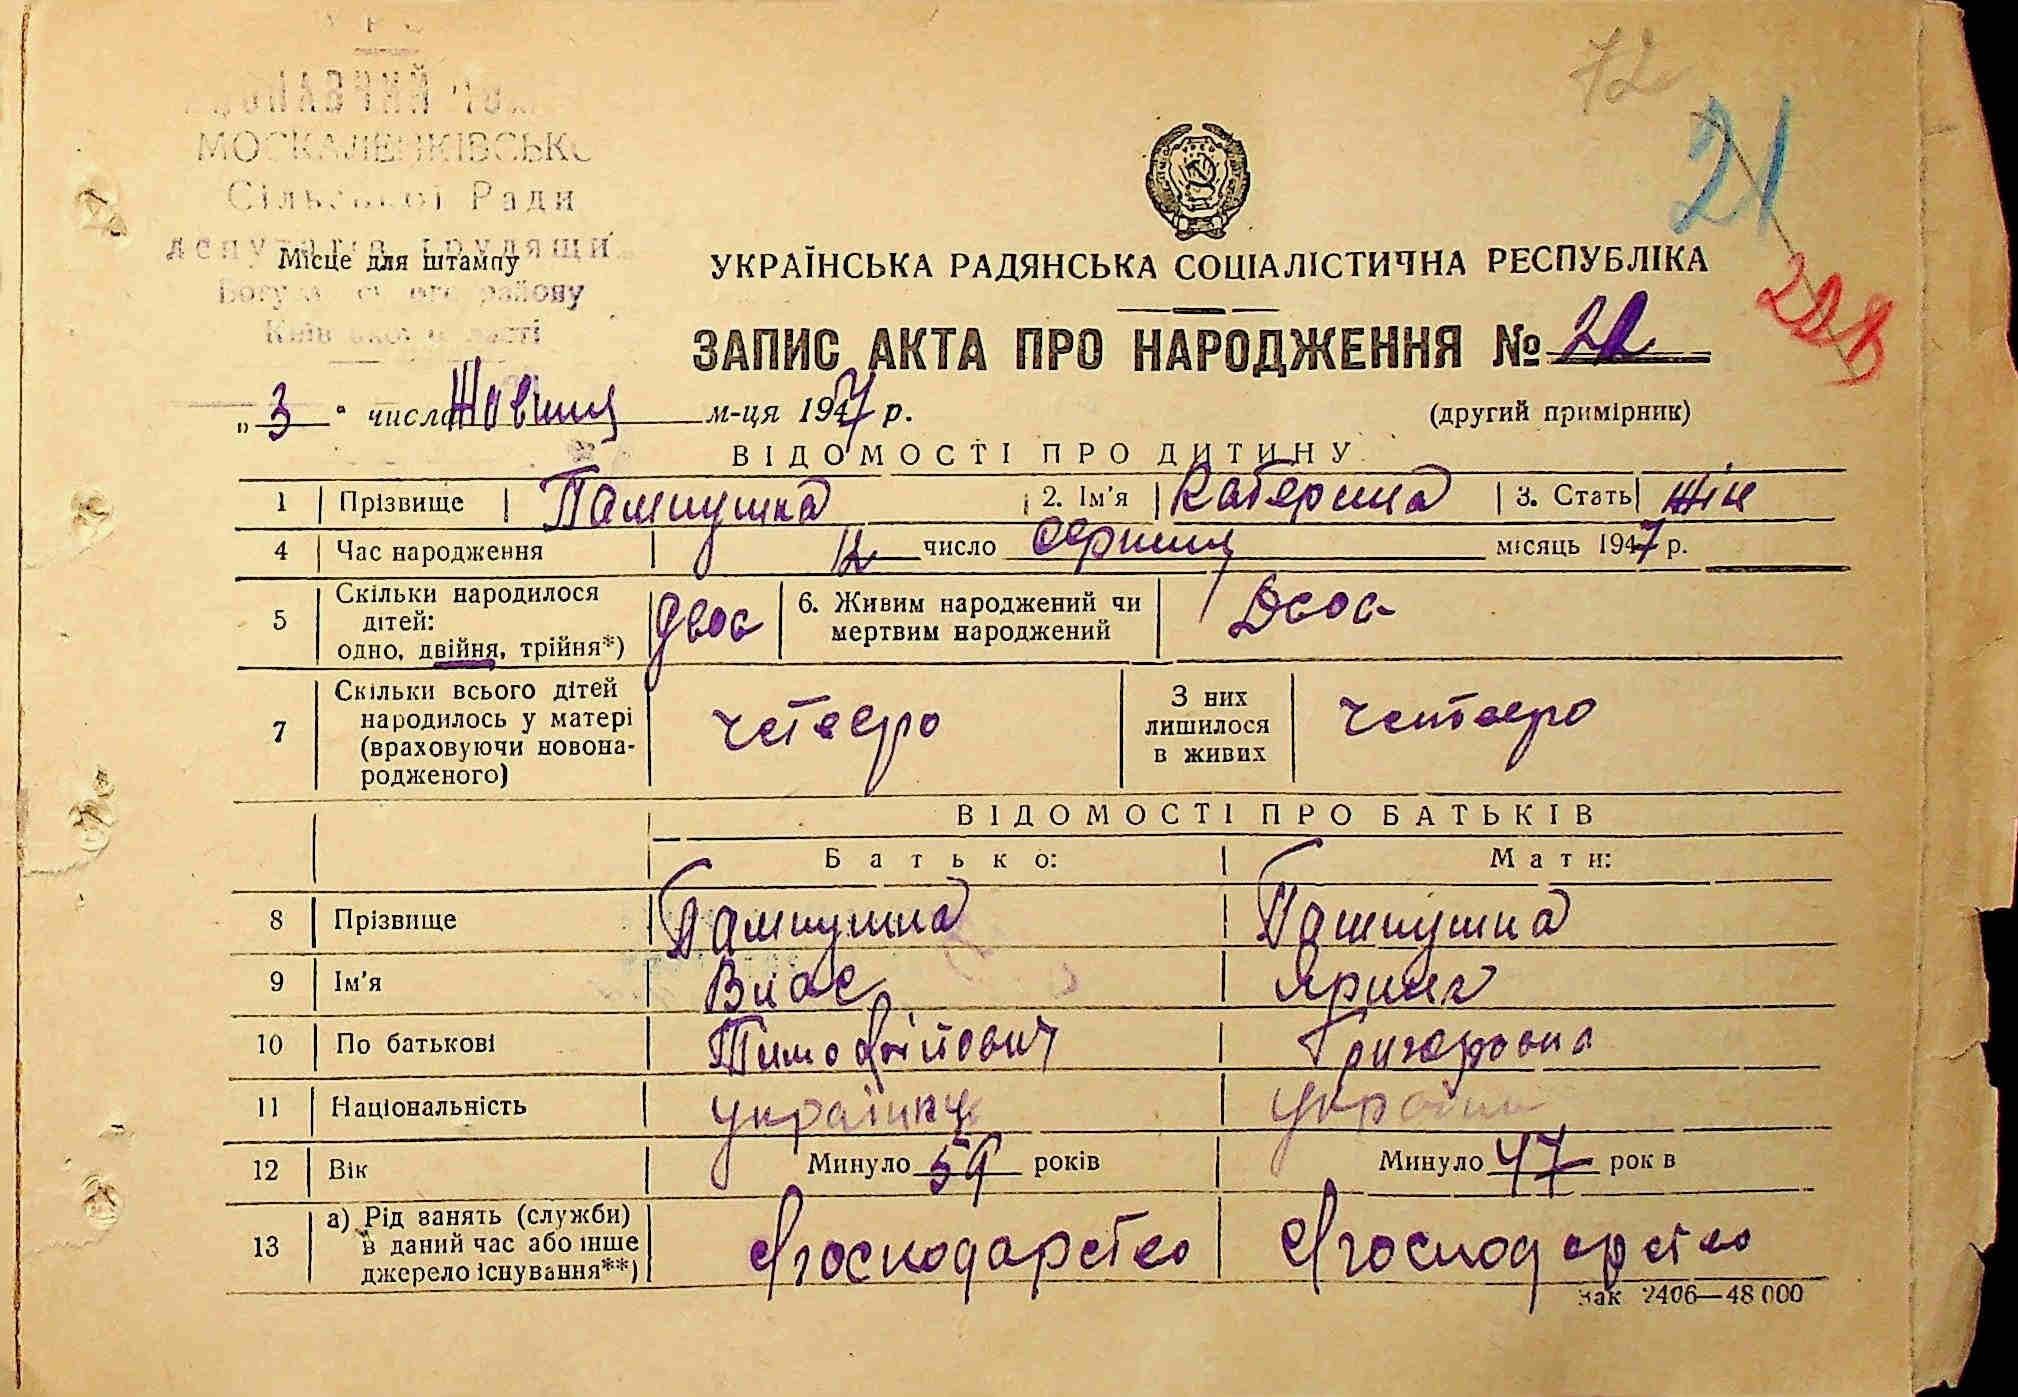 72
21
МОСКАЛЕНКІВСЬКО
Сільської Ради
депутатів трудящи
Місце для штампу
Богуславського району
Київської області
УКРАЇНСЬКА РАДЯНСЬКА СОЦІАЛІСТИЧНА РЕСПУБЛІКА
ЗАПИС АКТА ПРО НАРОДЖЕННЯ № 21
„3" числа Жовтня м-ця 1947 р.
(другий примірник)
ВІДОМОСТІ ПРО ДИТИНУ
1 Прізвище Пампушка 2. Ім'я Катерина 3. Стать жін
4 Час народження 12 число серпня місяць 1947 р.
5 Скільки народилося дітей: одно, двійня, трійня*) двоє 6. Живим народжений чи мертвим народжений Двоє
7 Скільки всього дітей народилось у матері (враховуючи новонародженого) четверо З них лишилося в живих четверо
ВІДОМОСТІ ПРО БАТЬКІВ
Батько: Мати:
8 Прізвище Пампушка Пампушка
9 Ім'я Влас Ярина
10 По батькові Тимофійович Григоровна
11 Національність українць україн
12 Вік Минуло 59 років Минуло 47 рок в
13 а) Рід занять (служби) в даний час або інше джерело існування**) с/господарство с/господарство
Зак 2406—48 000